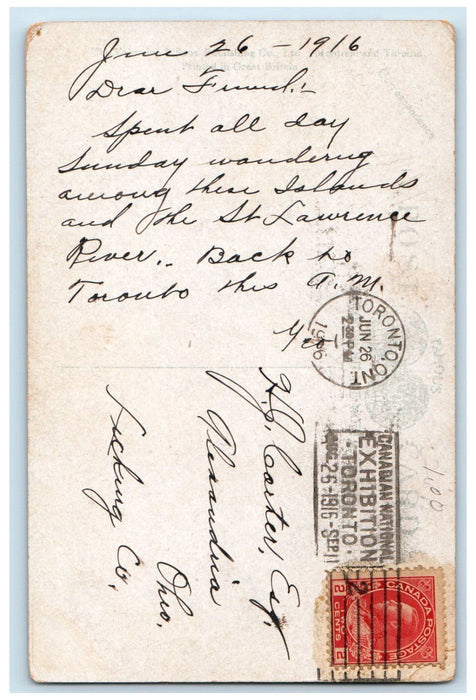 June 26 - 1916
Printed in Great Britain
Dear Friend:-
Spent all day
Sunday wandering
among these Islands
and the St Lawrence
River.. Back to
Toronto this A.M.
TORONTO, ONT.
JUN 26
1916
H.J. Carter, Esq.
Alexandria
Licking Co. Ohio.
CANADIAN NATIONAL
EXHIBITION
·TORONTO·
AUG 26-1916-SEP 11
1.00
CANADA POSTAGE
2 CENTS 2